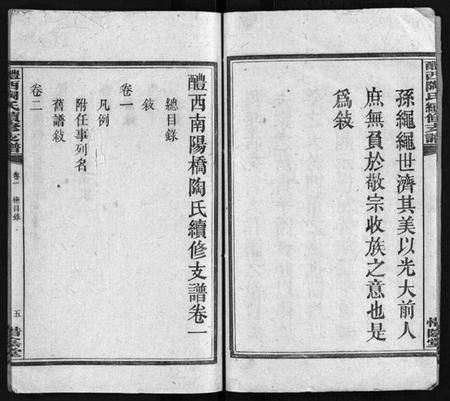 醴西陶氏續修支譜
孫繩繩世濟其美以光大前人
庶無負於敬宗收族之意也是
為敍
惜陰堂
醴西南陽橋陶氏續修支譜卷一
總目錄
敍
卷一
凡例
附任事列名
舊譜敍
卷二
醴西陶氏續修支譜
卷一 總目錄
五
惜陰堂